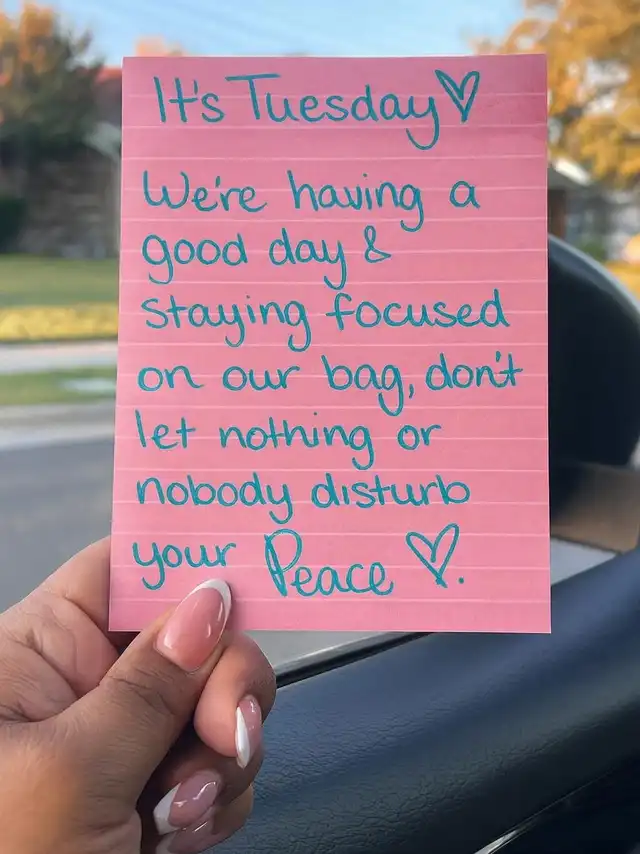 It's Tuesday♡
We're having a
good day &
staying focused
on our bag, don't
let nothing or
nobody disturb
your Peace ♡.